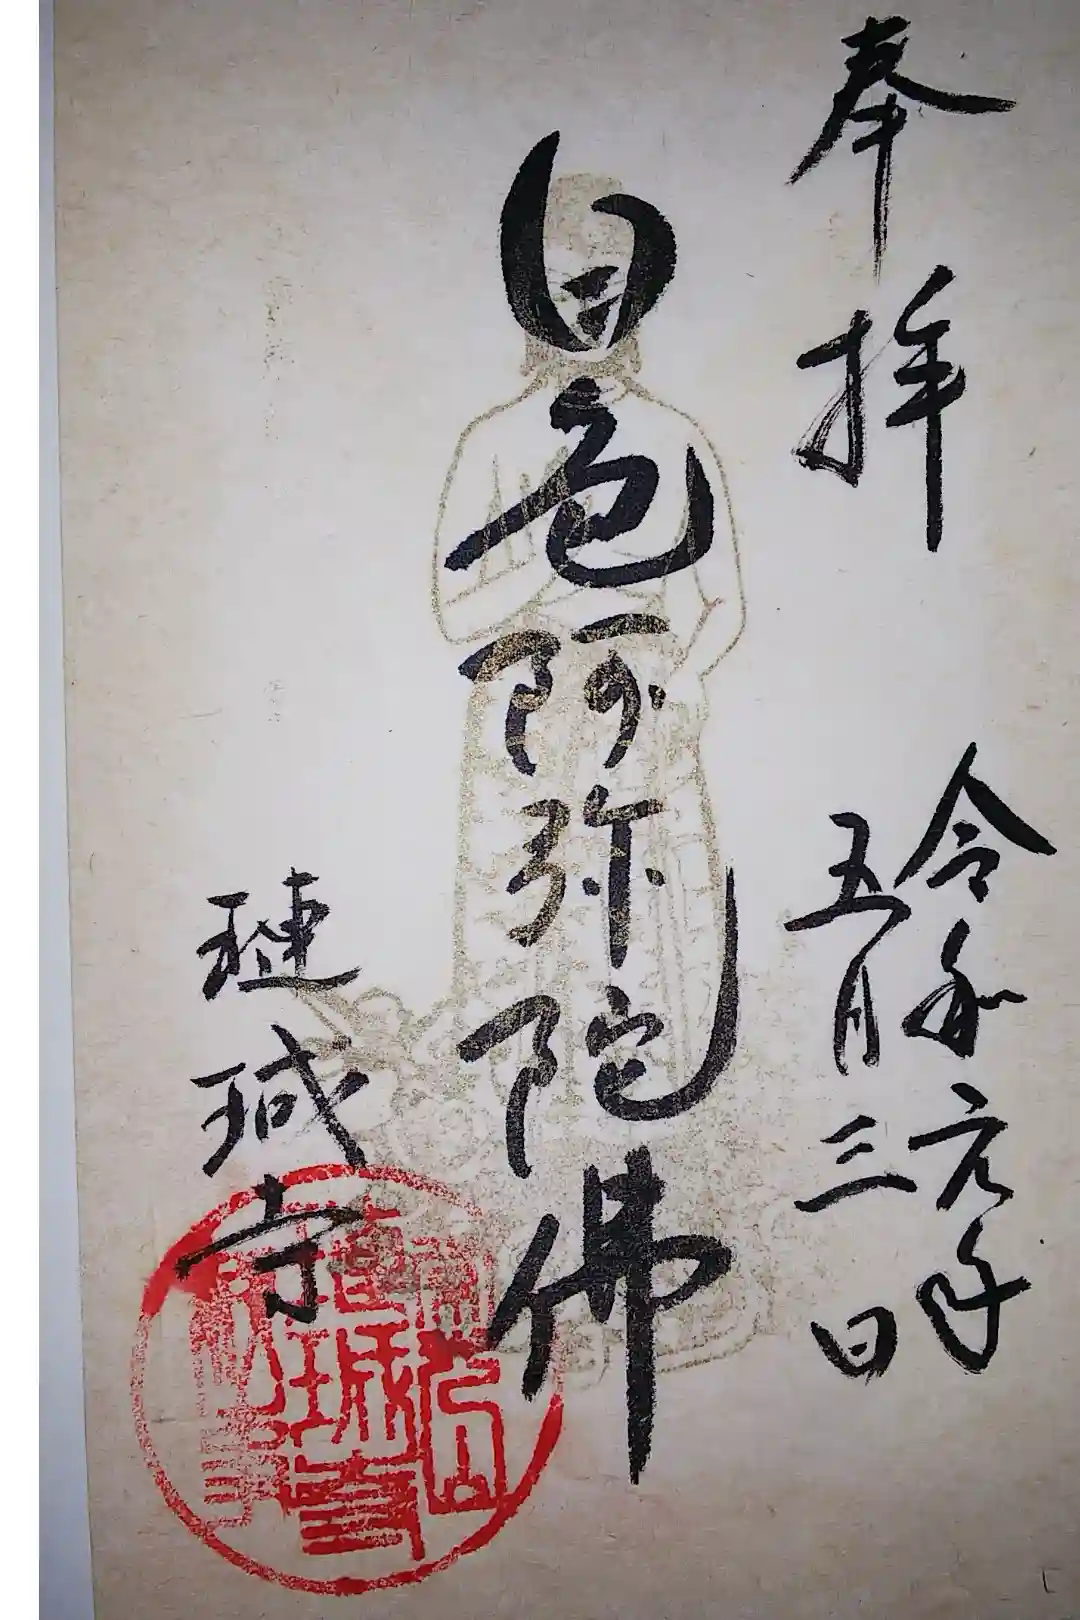 奉拝
令和元年
五月三日
白色阿弥陀佛
璉珹寺